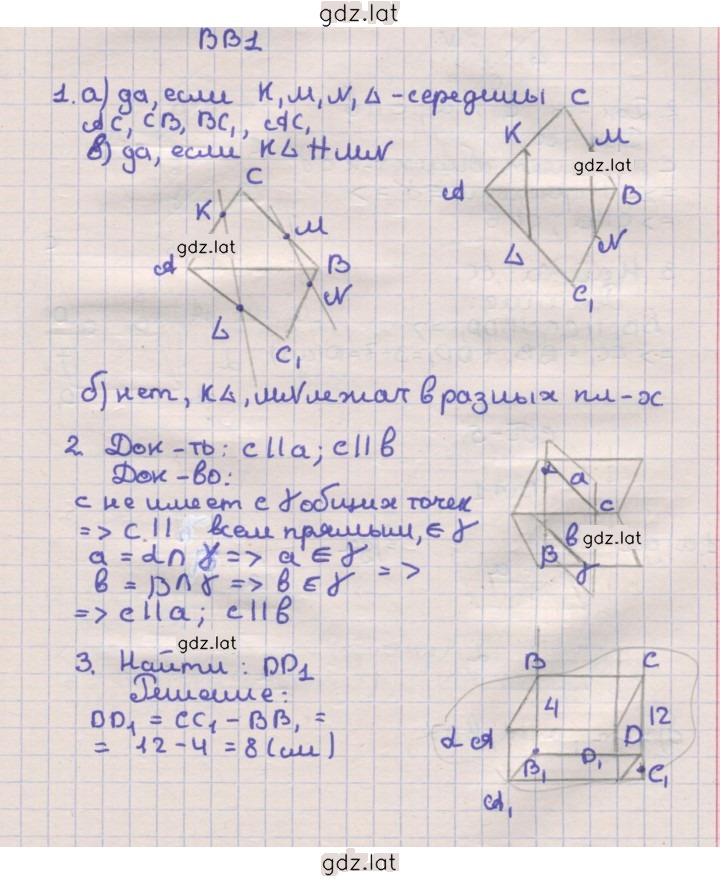 gdz.lat
ВВ1
1. а) да, если K, M, N, L - середины
AC, CB, BC₁, AC₁
в) да, если KL ∦ MN
C
K
M
gdz.lat
A
B
L
N
C₁
C
K
gdz.lat
M
A
B
N
L
C₁
б) нет, KL, MN лежат в разных пл-х
2. Док-ть: c || a; c || b
Док-во:
c не имеет с γ общих точек
=> c || всем прямым, ∈ γ
a = α ∩ γ => a ∈ γ
b = β ∩ γ => b ∈ γ =>
=> c || a; c || b
α
a
c
b
gdz.lat
β
γ
gdz.lat
3. Найти: DD₁
Решение:
DD₁ = CC₁ - BB₁ =
= 12 - 4 = 8 (см)
B
C
4
12
α A
D
B₁
D₁
C₁
A₁
gdz.lat